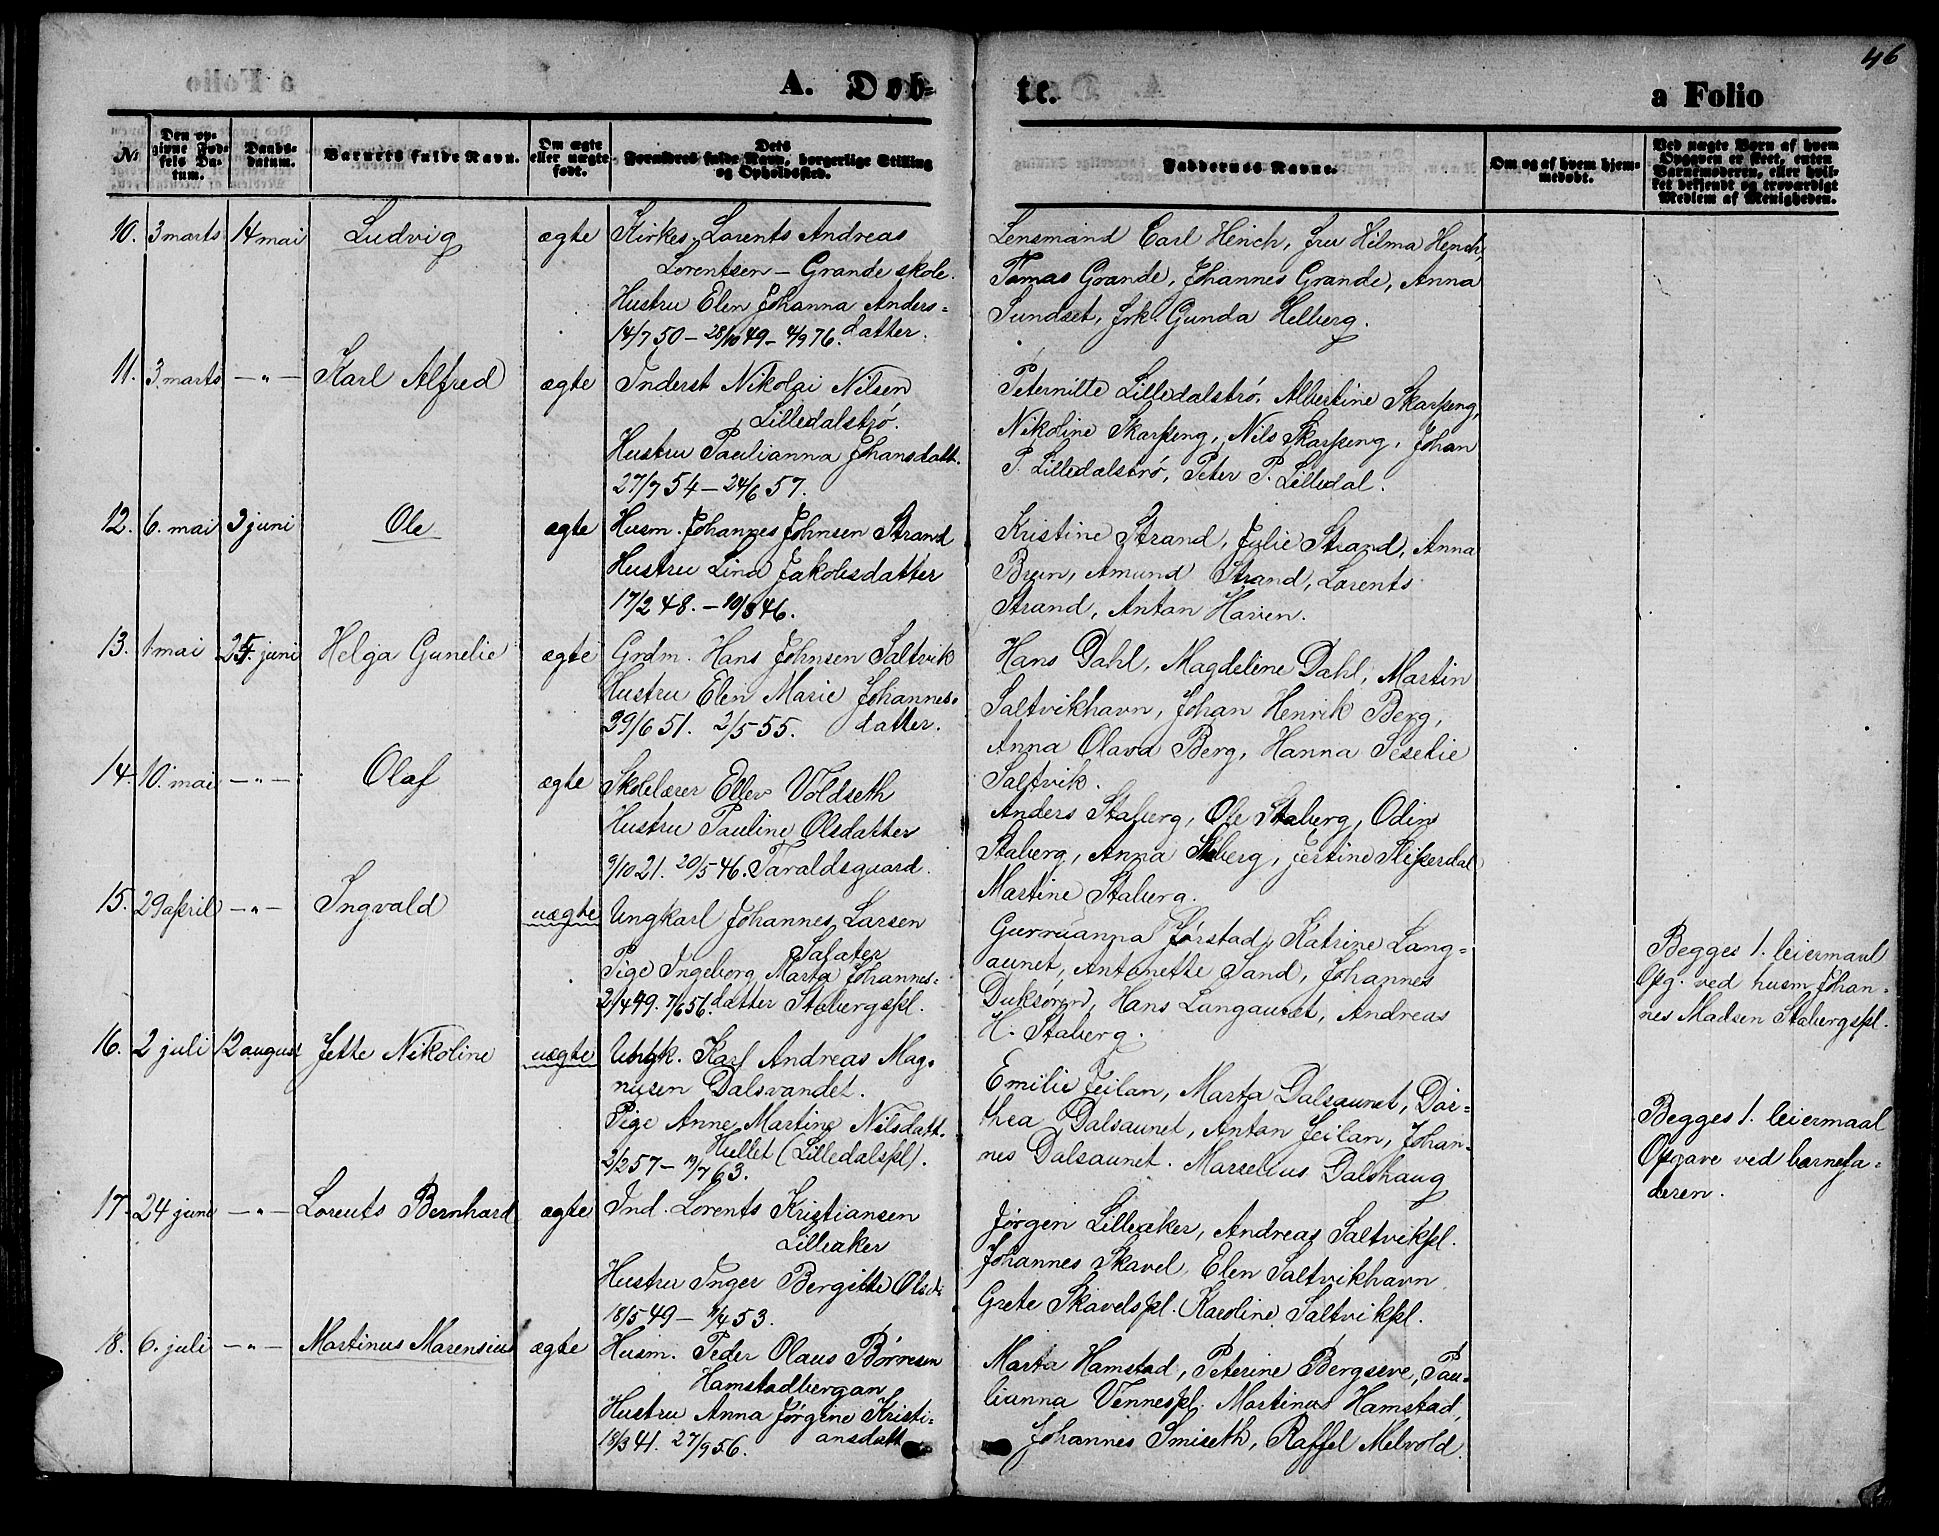 46
A. Døb-
te.
a Folio
No
Den op-
givne Fød-
sels Da-
tum.
Daabs-
datum.
Barnets fulde Navn.
Om ægte
eller uægte
født.
Dets
Forældres fulde Navn, borgerlige Stilling
og Opholdssted.
Faddernes Navne.
Om og af hvem hjem-
medøbt.
Ved uægte Børn af hvem
Opgaven er skeet, enten
Barnemoderen, eller hvil-
ket bekjendt og troværdigt
Medlem af Menigheden.
10. 3 marts 14 mai Ludvig ægte
Kirkes. Lorents Andreas
Lorentsen – Grande skole.
Hustru Elen Johanna Anders-
14/7 50 – 28/10 49 – 4/9 76. datter.
Lensmand Carl Hench, fru Hilma Hench,
Tomas Grande, Johannes Grande, Anna
Sundset, frk. Gunda Helberg.
11. 3. marts –"– Karl Alfred ægte
Inderst Nikolai Nilsen
Lilledalstrø.
Hustru Paulianna Johansdatt.
27/7 54 – 24/6 57.
Peternitte Lilledalstrø, Albertine Skarpeng,
Nikoline Skarpeng, Nils Skarpeng, Johan
P. Lilledalstrø, Peter P. Lilledal.
12. 6. mai 3 juni Ole ægte
Husm. Johannes Johnsen Strand
Hustru Lina Jakobsdatter
17/2 48. – 10/3 46.
Kristine Strand, Julie Strand, Anna
Brun, Amund Strand, Lorents
Strand, Anton Haven.
13. 1 mai 25. juni Helga Gunelie ægte
Grdm. Hans Johnsen Saltvik
Hustru Elen Marie Johannes-
29/6 51. 2/5 55. datter.
Hans Dahl, Magdelene Dahl, Martin
Saltvikhavn, Johan Henrik Berg,
Anna Olava Berg, Hanna Seselie
Saltvik.
14. 10. mai –"– Olaf ægte
Skolelærer Ellev Voldseth
Hustru Pauline Olsdatter
9/10 21. 20/5 46. Taraldsgaard.
Anders Staberg, Ole Staberg, Odin
Staberg, Anna Staberg, Jertine Slipserdal
Martine Staberg.
15. 29 april –"– Ingvald uægte
Ungkarl Johannes Larsen
Salater
Pige Ingeborg Marta Johannes-
2/4 49. 7/6 56. datter Stabergspl.
Gurruanna Jørstad, Katrine Lang-
aunet, Antonette Sand, Johannes
Duksøren, Hans Langaunet, Andreas
H. Staberg.
Begges 1. leiermaal
Opg. ved husm. Johan-
nes Madsen Stabergspl.
16. 2 juli 12 august Jette Nikoline uægte
Ungk. Karl Andreas Mag-
nusen Dalsvandet.
Pige Anne Martine Nilsdatt.
Hullet (Lilledalspl).
2/2 57 – 11/7 63.
Emilie Jeilan, Marta Dalsaunet, Dor-
thea Dalsaunet, Anton Jeilan, Johan-
nes Dalsaunet. Marselius Dalshaug
Begges 1. leiermaal
Opgave ved barnefa-
deren.
17. 24 juni –"– Lorents Bernhard ægte
Ind. Lorents Kristiansen
Lilleaker
Hustru Inger Bergitte Olsd.
18/5 49 – 11/4 53.
Jørgen Lilleaker, Andreas Saltvikpl.
Johannes Skavel, Elen Saltvikhavn
Grete Skavelspl. Karoline Saltvikpl.
18. 6. juli –"– Martinus Marensius ægte
Husm. Peder Olaus Børresen
Hamstadbergan
Hustru Anna Jørgine Kristi-
19/3 41. 27/9 56. ansdatt.
Marta Hamstad, Peterine Bergseve, Pau-
lianna Vennespl. Martinus Hamstad,
Johannes Smiseth, Raffel Melvold.